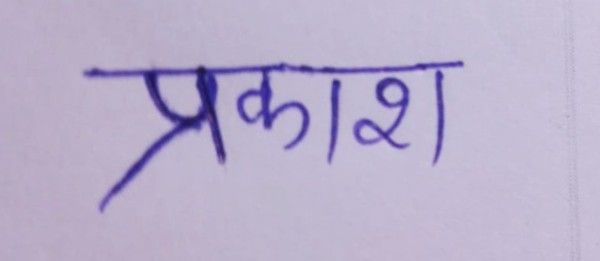 प्रकाश